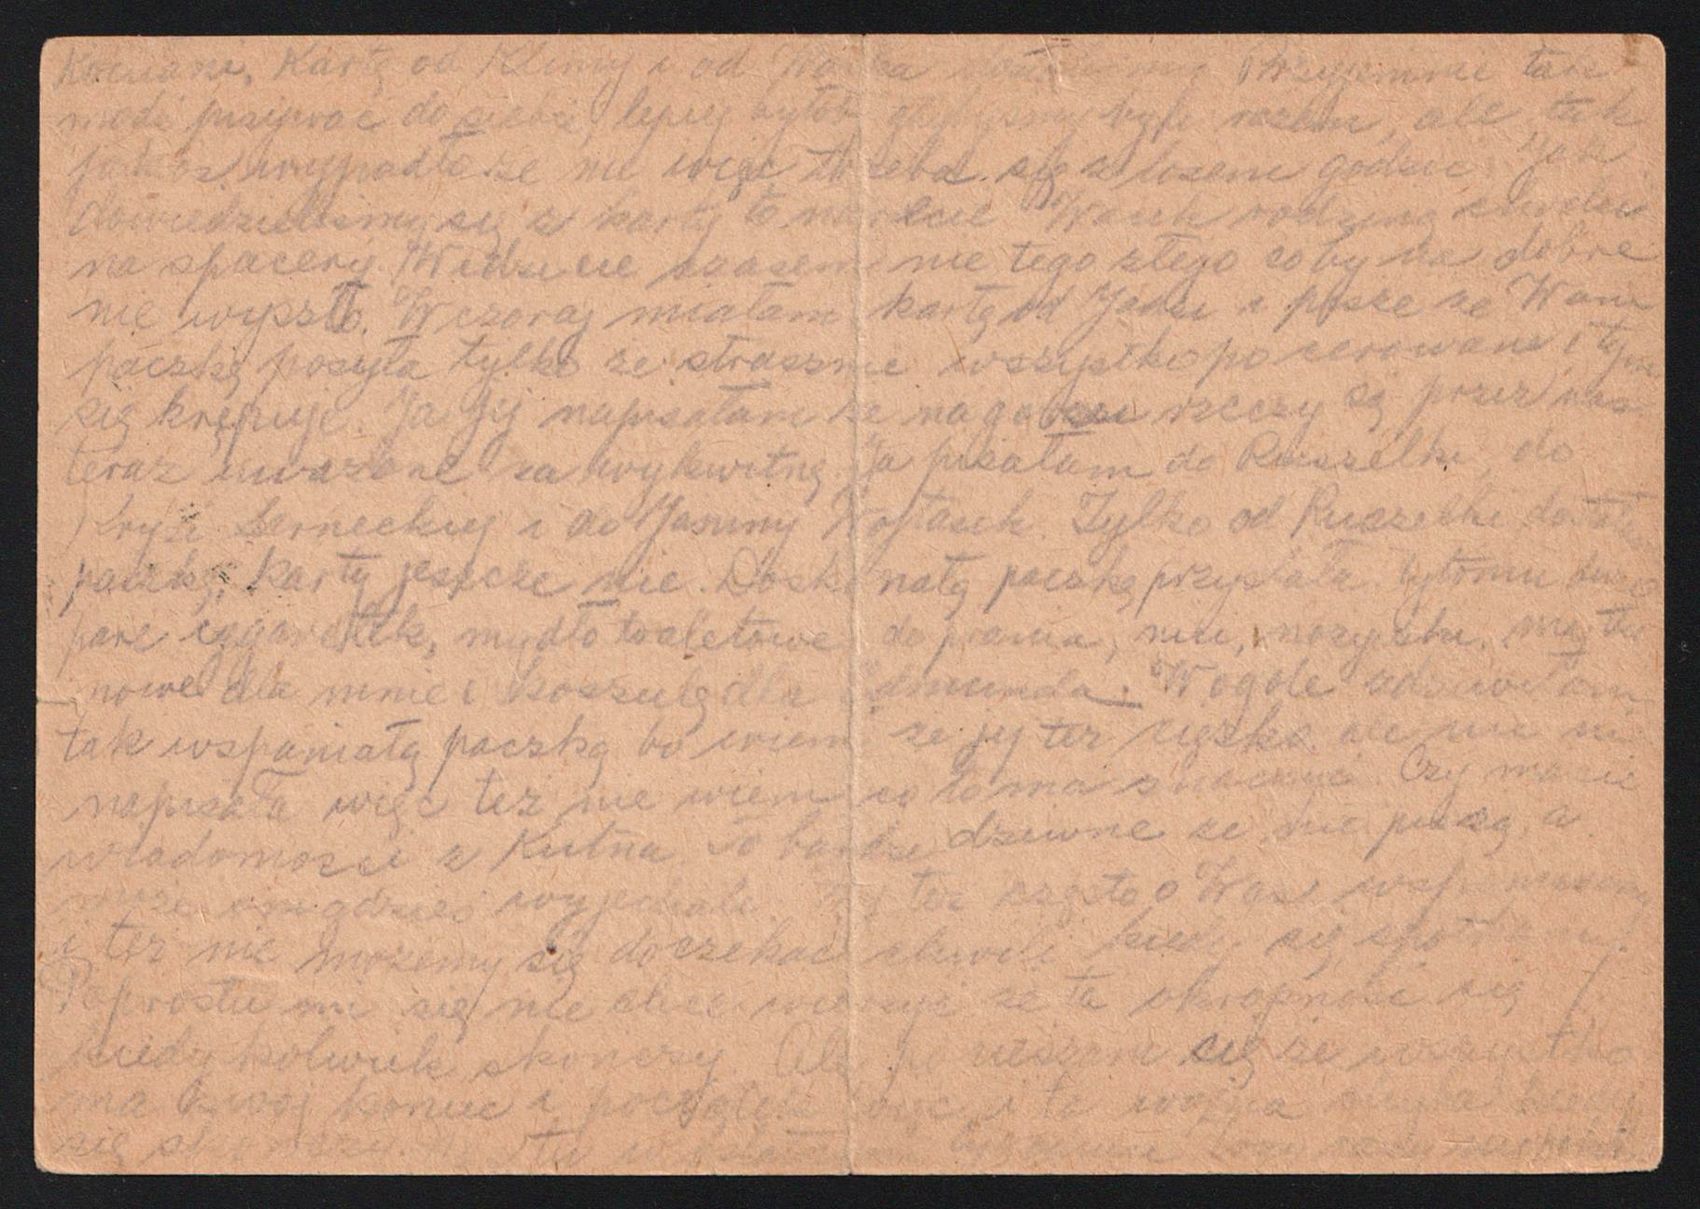 Kochani, Kartę od Klimy i od Wacka Przyjemnie tak
módz pisywać do siebie, lepiej byłob gdybysmy byli razem, ale tak
jakos wypadło ze nie więc trzeba się z losem godzic. Jak
dowiedzielismy się z karty to nareszcie Wacek rodzinę
na spacery. Widzicie czasem nie tego złego coby na dobre
nie wyszło. Wczoraj miałam kartę od Jadzi i pisze ze Wam
paczkę posyła tylko ze strasznie wszystko pocerowane i tym
się krępuje. Ja jej napisałam ze najgorsze rzeczy są przez nas
teraz uwazane za wykwitną. Ja pisałam do Ruszelki, do
Kryzi Serneckiej i do Janiny Wojtasek. Tylko od Ruszelki
paczkę, kartę jeszcze nie. Doskonałą paczkę przysłała. tytoniu
pare cygaretek, mydło toaletowe do prania, nici, nozyczki,
nowe dla mnie i koszulę dla Edmunda. Wogóle
tak wspaniałą paczką bo wiem ze jej tez cięzko ale nic nie
napisała więc tez nie wiem co to ma znaczyć. Czy macie
wiadomosci z Kutna. To bardzo dziwne ze nie piszą, a
moze oni gdzies wyjechali. My tez często o Was wspominamy
i tez nie mozemy się doczekac chwili kiedy się spotkamy.
Poprostu mi się nie chce wierzyć ze ta okropność się
kiedykolwiek skonczy. Ale pocieszam się ze wszystko
ma swój koniec i początek więc i ta wojna chyba kiedyś
się skonczy.